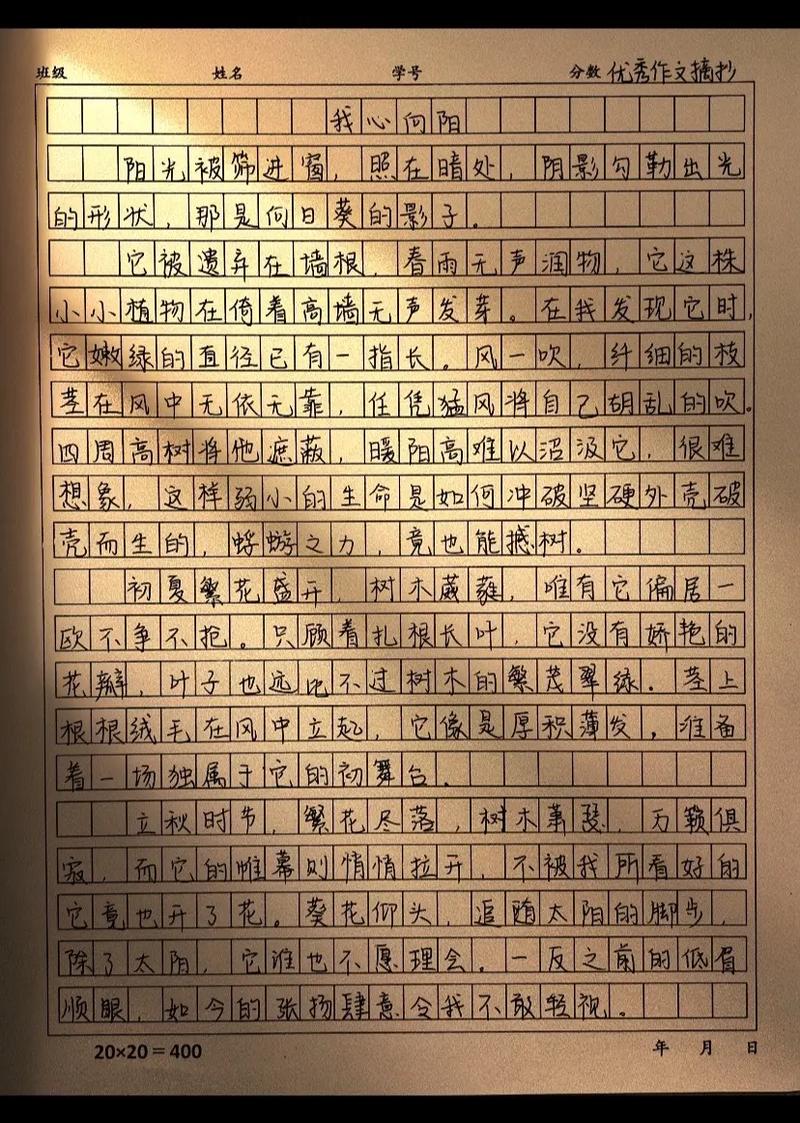 班级 姓名 学号 分数 优秀作文摘抄
我心向阳
阳光被筛进窗，照在暗处，阴影勾勒出光
的形状，那是向日葵的影子。
它被遗弃在墙根，春雨无声润物，它这株
小小植物在倚着高墙无声发芽。在我发现它时，
它嫩绿的直径已有一指长。风一吹，纤细的枝
茎在风中无依无靠，任凭猛风将自己胡乱的吹。
四周高树将他遮蔽，暖阳高难以沼汲它，很难
想象，这样弱小的生命是如何冲破坚硬外壳破
壳而生的，蜉蝣之力，竟也能撼树。
初夏繁花盛开，树木葳蕤，唯有它偏居一
欧不争不抢。只顾着扎根长叶，它没有娇艳的
花瓣，叶子也远比不过树木的繁茂翠绿。茎上
根根绒毛在风中立起，它像是厚积薄发，准备
着一场独属于它的初舞台。
立秋时节，繁花尽落，树木萧瑟，万籁俱
寂，而它的帷幕则悄悄拉开，不被我所看好的
它竟也开了花。葵花仰头，追随太阳的脚步，
除了太阳，它谁也不愿理会。一反之前的低眉
顺眼，如今的张扬肆意令我不敢轻视。
20×20＝400 年 月 日